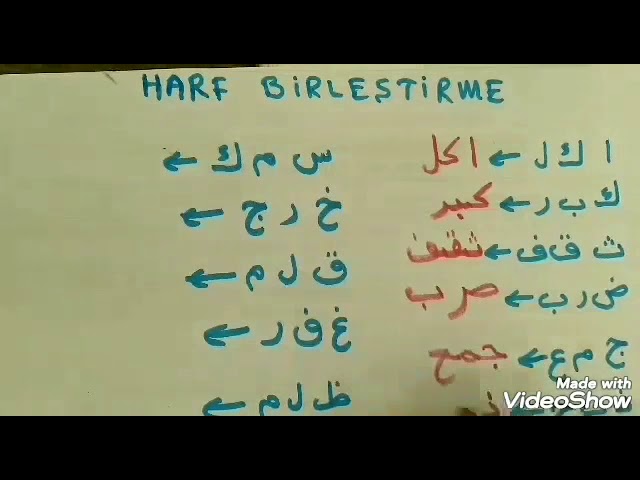 HARF BİRLEŞTİRME
ا ك ل ← اكل
ك ب ر ← كبر
ث ق ف ← ثقف
ض ر ب ← ضرب
ج م ع ← جمع
س م ك ←
خ ر ج ←
ق ل م ←
غ ف ر ←
ظ ل م ←
Made with
VideoShow